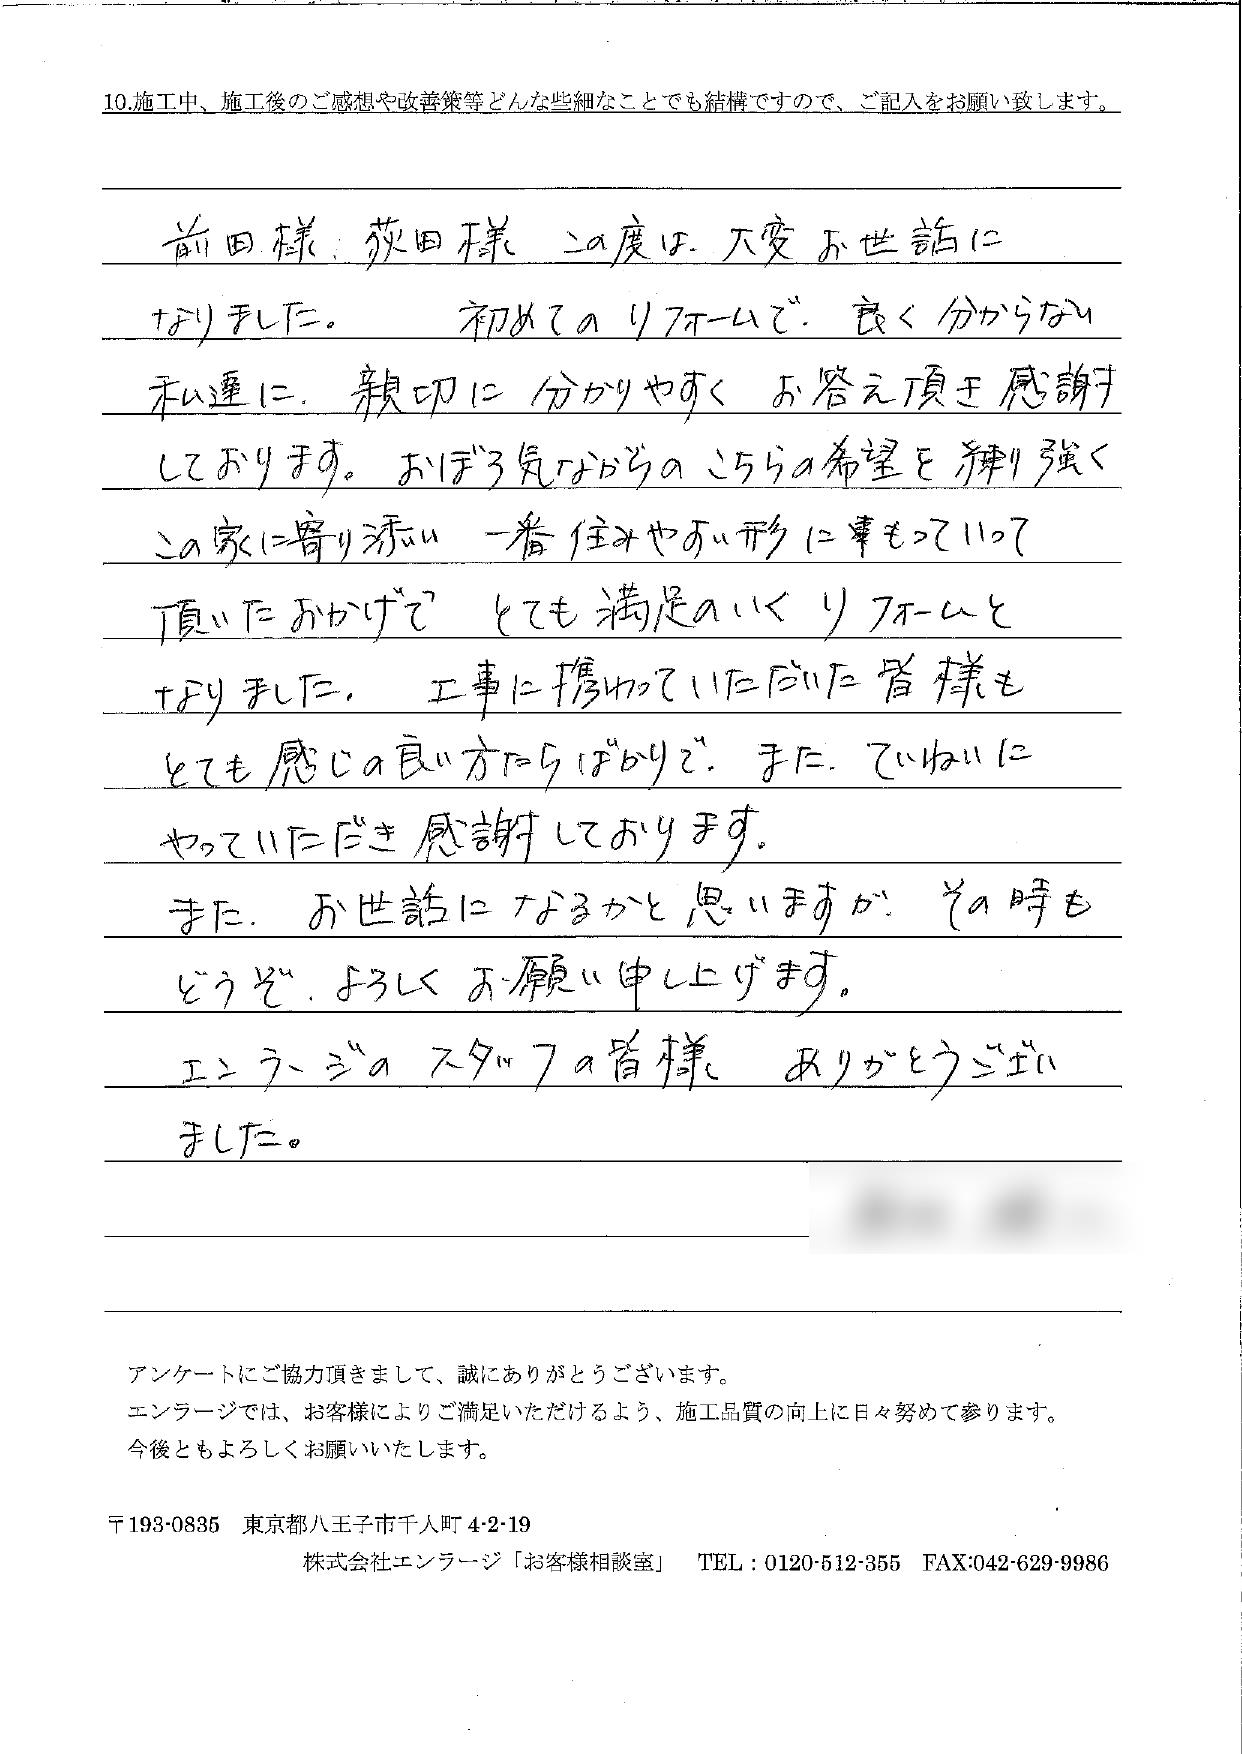 10.施工中、施工後のご感想や改善策等どんな些細なことでも結構ですので、ご記入をお願い致します。
前田様、荻田様 この度は、大変お世話に
なりました。 初めてのリフォームで、良く分からない
私達に、親切に分かりやすく お答え頂き感謝
しております。おぼろ気ながらのこちらの希望を練り強く
この家に寄り添い 一番住みやすい形に事もっていって
頂いたおかげで とても満足のいくリフォームと
なりました。 工事に携わっていただいた皆様も
とても感じの良い方たちばかりで、また、ていねいに
やっていただき感謝しております。
また、お世話になるかと思いますが、その時も
どうぞ、よろしくお願い申し上げます。
エンラージのスタッフの皆様 ありがとうござい
ました。
アンケートにご協力頂きまして、誠にありがとうございます。
エンラージでは、お客様によりご満足いただけるよう、施工品質の向上に日々努めて参ります。
今後ともよろしくお願いいたします。
〒193-0835 東京都八王子市千人町 4-2-19
株式会社エンラージ「お客様相談室」 TEL：0120-512-355 FAX:042-629-9986